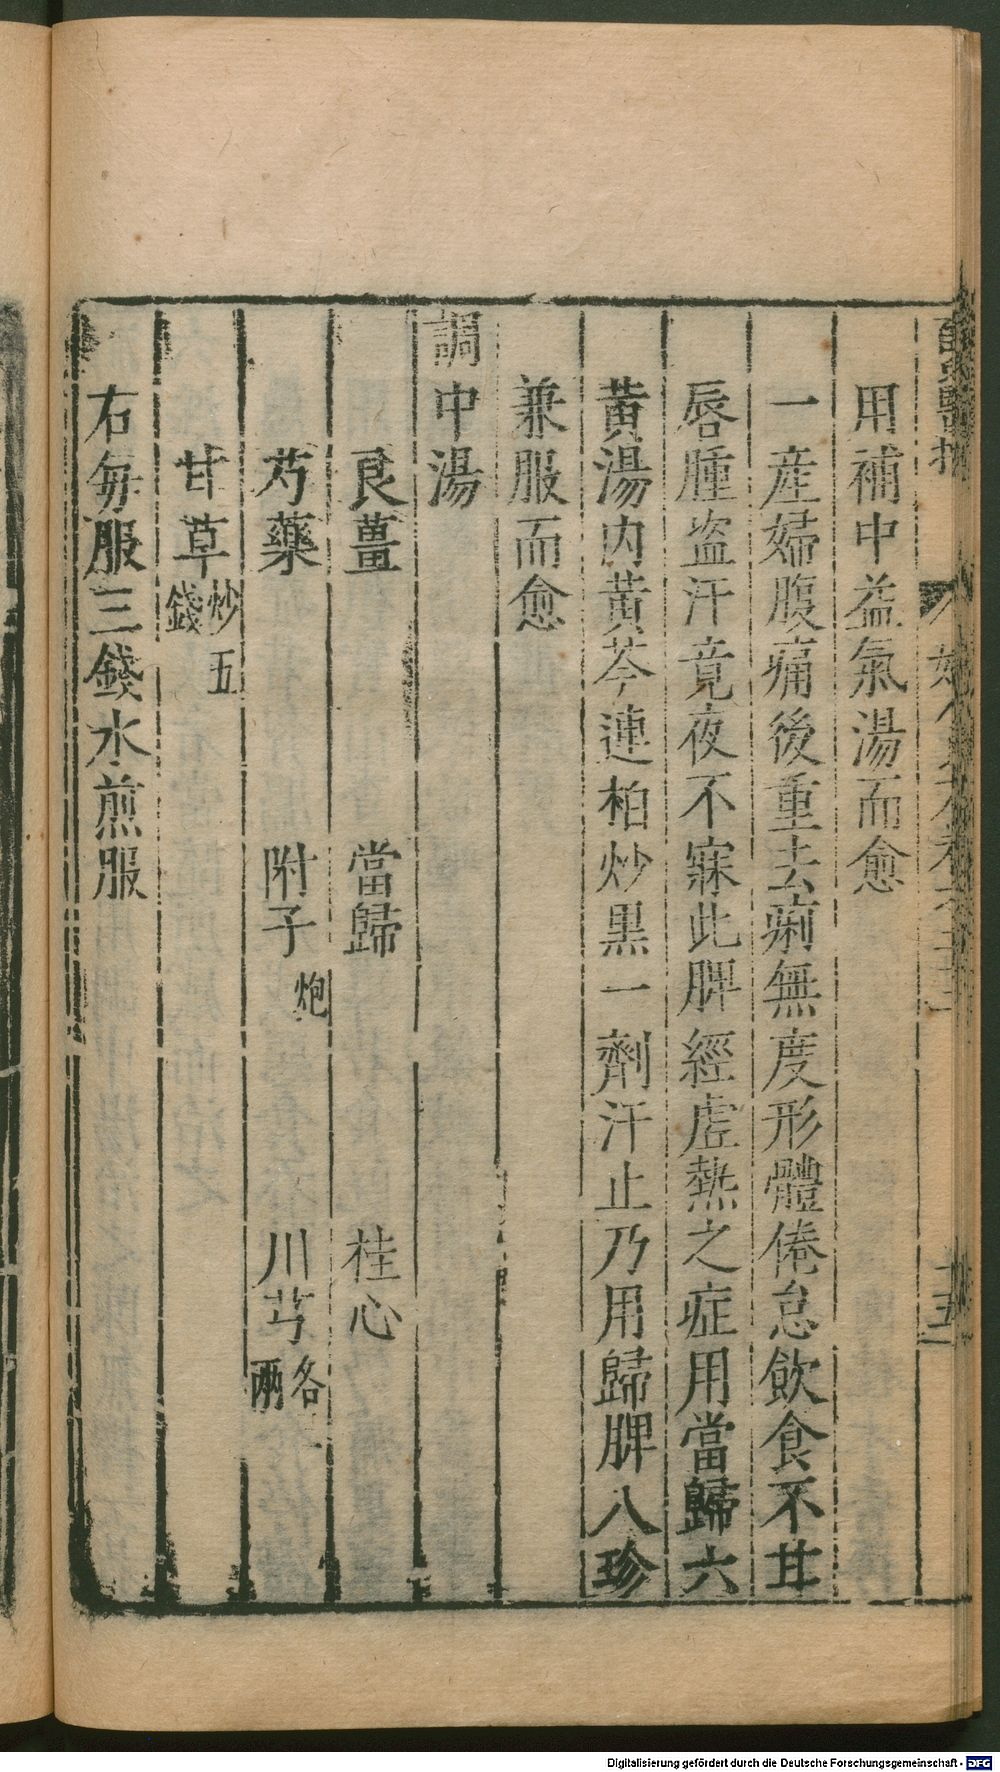 用補中益氣湯而愈
一產婦腹痛後重去痢無度形體倦怠飲食不甘
唇腫盗汗竟夜不寐此脾經虛熱之症用當歸六
黃湯内黃芩連柏炒黒一劑汗止乃用歸脾八珍
兼服而愈
調中湯
良薑 當歸 桂心
芍藥 附子炮 川芎各一兩
甘草炒五錢
右每服三錢水煎服
Digitalisierung gefördert durch die Deutsche Forschungsgemeinschaft - DFG